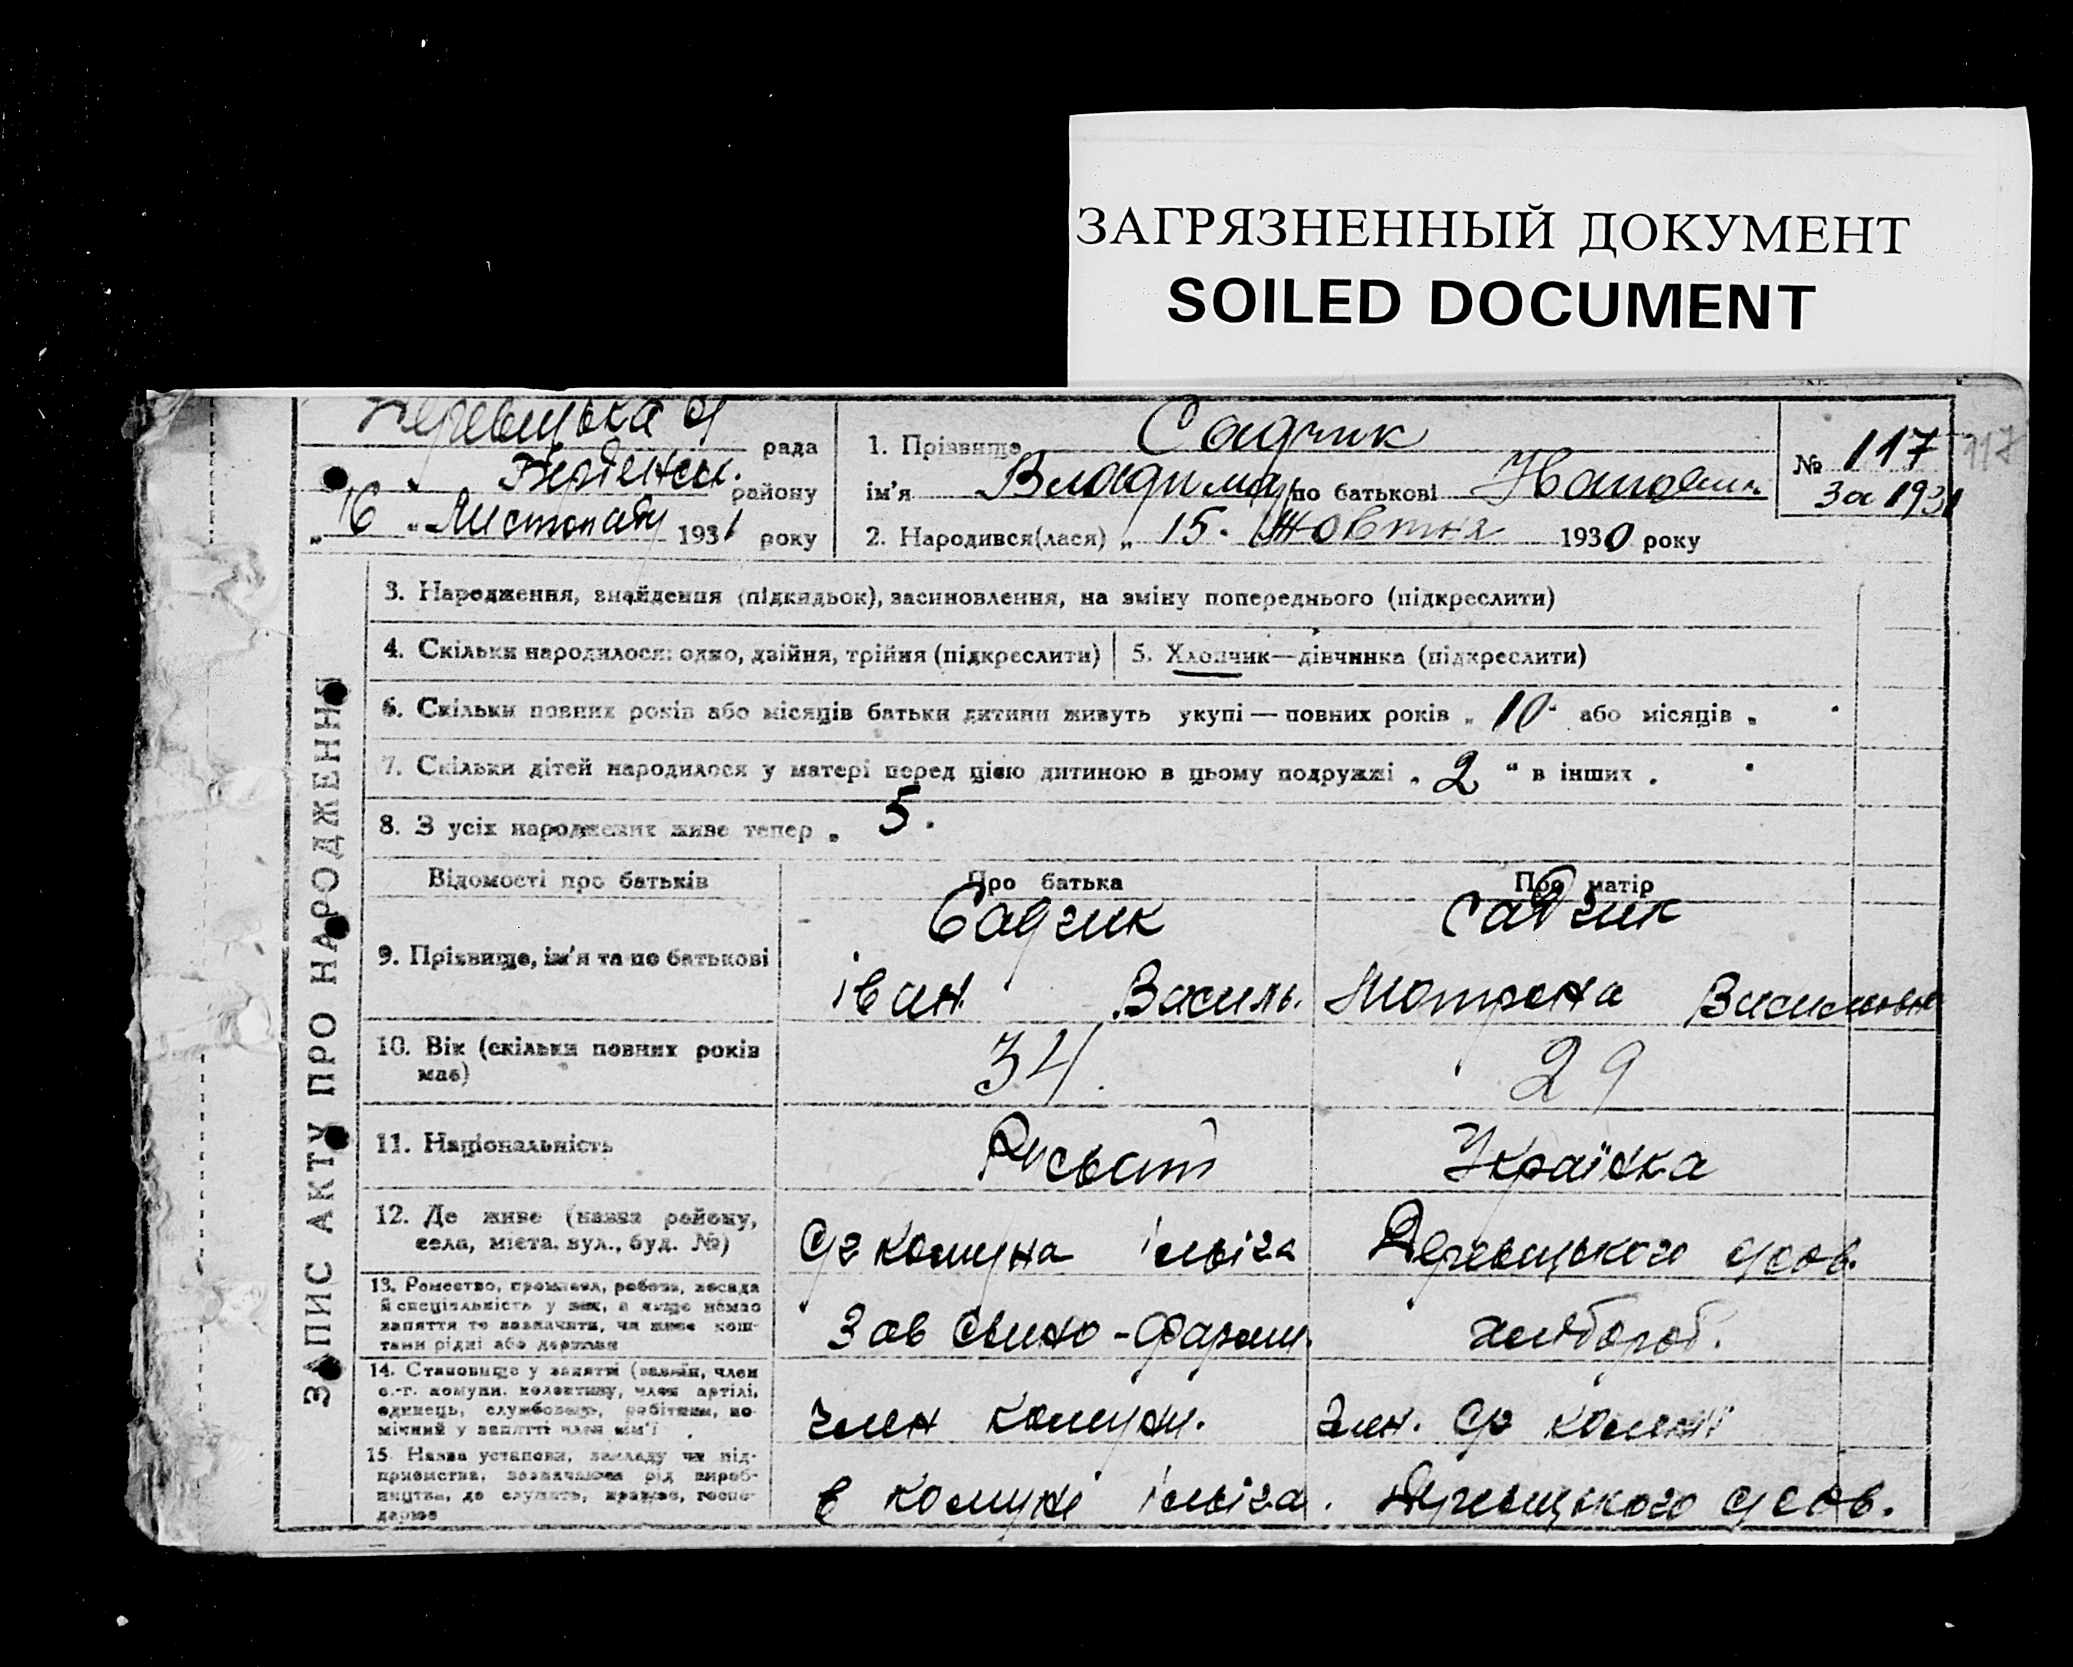 ЗАГРЯЗНЕННЫЙ ДОКУМЕНТ
SOILED DOCUMENT
рада
району
„ 16 " Листопаду 1931 року
1. Прізвище Садчик
ім'я Владимир по батькові
2. Народився(лася) „ 15. Жовтня 1930 року
№ 117
За 1931
117
ЗАПИС АКТУ ПРО НАРОДЖЕННЯ
3. Народження, знайдення (підкидьок), засиновлення, на зміну попереднього (підкреслити)
4. Скільки народилося: одно, двійня, трійня (підкреслити)
5. Хлопчик—дівчинка (підкреслити)
6. Скільки повних років або місяців батьки дитини живуть укупі — повних років „ 10 " або місяців „
7. Скільки дітей народилося у матері перед цією дитиною в цьому подружжі „ 2 " в інших „
8. З усіх народжених живе тепер „ 5.
Відомості про батьків
Про батька
Про матір
9. Прізвище, ім'я та по батькові
Садчик
Садчик
Іван Василь.
Мотрона
10. Вік (скільки повних років має)
34
29
11. Національність
Українка
12. Де живе (назва району, села, міста, вул., буд. №)
комуна Ілліча
13. Ремество, промисел, робота, посада
й спеціяльність у них, а якщо немає
заняття то зазначити, чи живе кош-
тами рідні або держави
Зав свино-фарми.
хлібороб.
14. Становище у занятті (хазяїн, член
с.-г. комуни, колективу, член артілі,
одинець, службовець, робітник, по-
мічний у занятті член сім'ї
член комуни.
член.
15. Назва установи, закладу чи під-
приємства, зазначаючи рід вироб-
ництва, де служить, працює, госпо-
дарює
в комуні Ілліча.